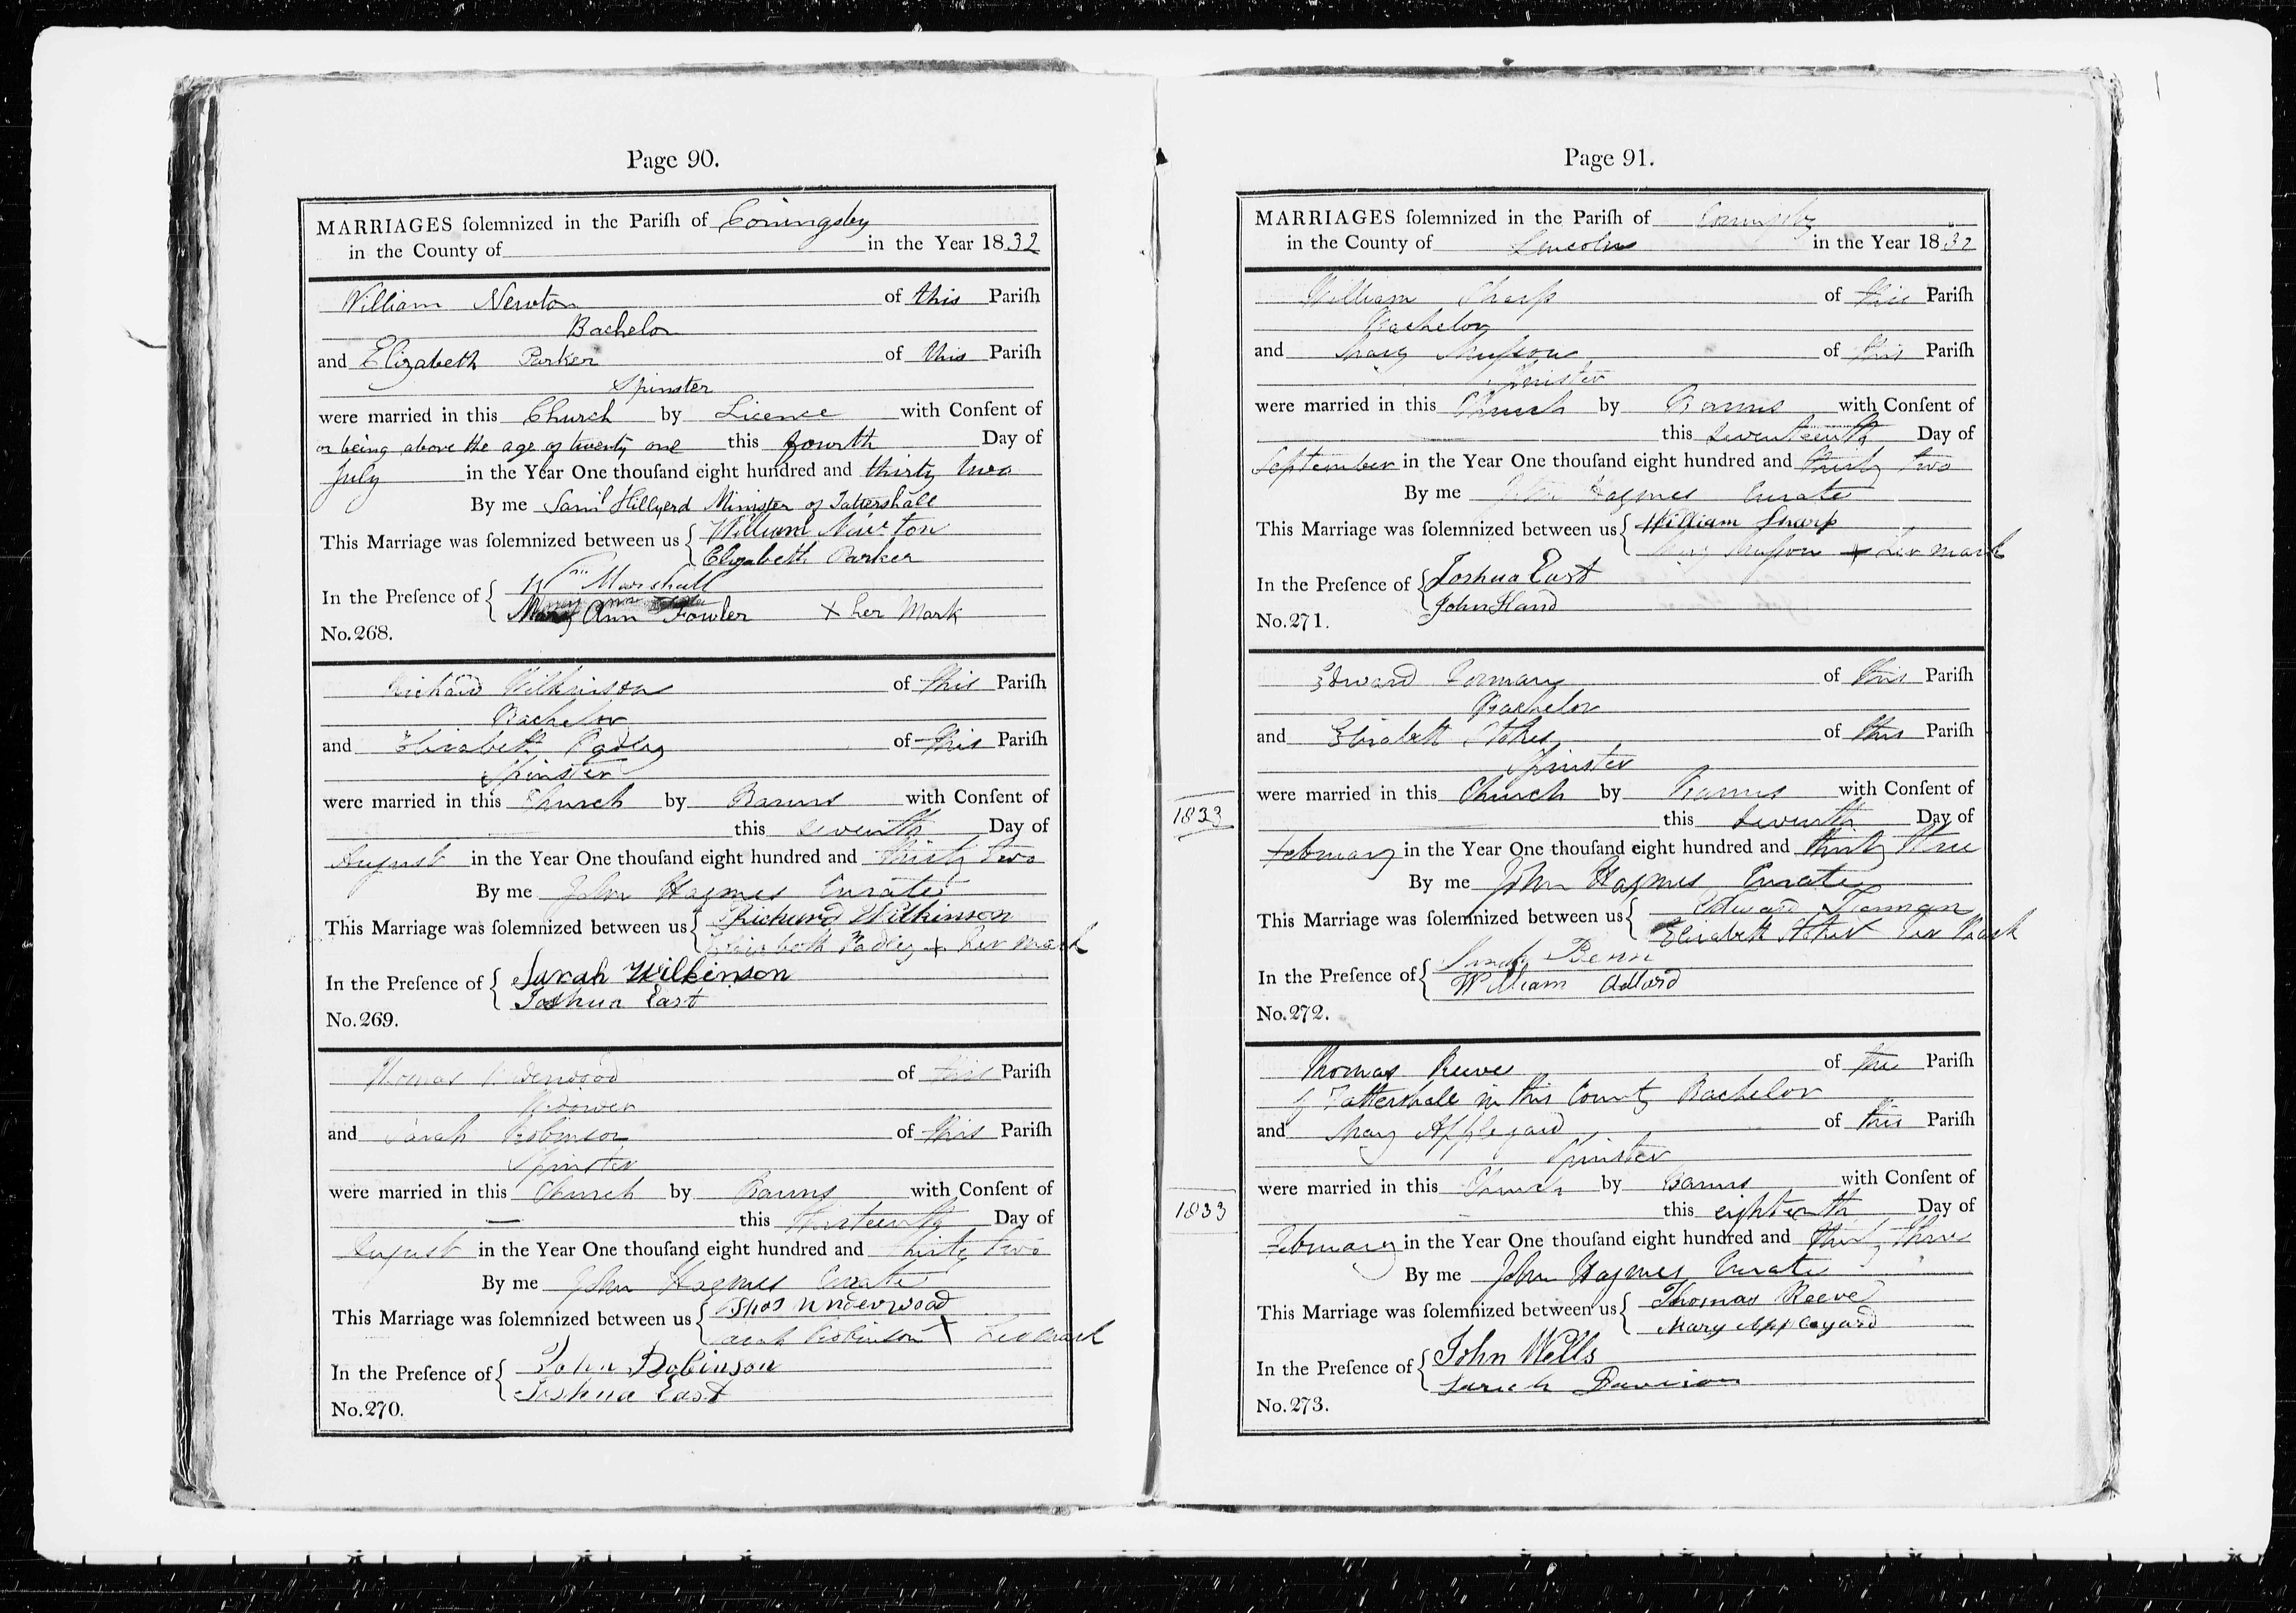 Page 90.
MARRIAGES solemnized in the Parish of Coningsby
in the County of in the Year 1832
William Newton of this Parish
Bachelor
and Elizabeth Parker of this Parish
Spinster
were married in this Church by Licence with Consent of
or being above the age of twenty one this fourth Day of
July in the Year One thousand eight hundred and thirty two
By me Saml Hillyerd Minister of Tattershall
This Marriage was solemnized between us { William Newton
Elizabeth Parker
In the Presence of { Wm Marshall
Mary Ann Fowler X her Mark
No. 268.
Richard Wilkinson of this Parish
Bachelor
and Elizabeth Padley of this Parish
Spinster
were married in this Church by Banns with Consent of
this seventh Day of
August in the Year One thousand eight hundred and thirty two
By me John Haymes Curate
This Marriage was solemnized between us { Richard Wilkinson
Elizabeth Padley + her mark
In the Presence of { Sarah Wilkinson
Joshua East
No. 269.
Thomas Underwood of this Parish
Widower
and Sarah Robinson of this Parish
Spinster
were married in this Church by Banns with Consent of
— this thirteenth Day of
August in the Year One thousand eight hundred and thirty two
By me John Haymes Curate
This Marriage was solemnized between us { Thos Underwood
Sarah Robinson X her mark
In the Presence of { John Robinson
Joshua East
No. 270.
Page 91.
MARRIAGES solemnized in the Parish of Coningsby
in the County of Lincoln in the Year 1832
William Sharp of this Parish
Bachelor
and Mary Musson of this Parish
Spinster
were married in this Church by Banns with Consent of
this seventeenth Day of
September in the Year One thousand eight hundred and thirty two
By me John Haymes Curate
This Marriage was solemnized between us { William Sharp
Mary Musson + her mark
In the Presence of { Joshua East
John Hand
No. 271.
Edward Forman of this Parish
Bachelor
and Elizabeth Stokes of this Parish
Spinster
were married in this Church by Banns with Consent of
1833
this seventh Day of
February in the Year One thousand eight hundred and thirty three
By me John Haymes Curate
This Marriage was solemnized between us { Edward Forman
Elizabeth Stokes her Mark
In the Presence of { Benn
William Adlard
No. 272.
Thomas Reeve of the Parish
of Tattershall in this County Bachelor
and Mary Appleyard of this Parish
Spinster
were married in this Church by Banns with Consent of
1833
this eighteenth Day of
February in the Year One thousand eight hundred and thirty three
By me John Haymes Curate
This Marriage was solemnized between us { Thomas Reeve
Mary Appleyard
In the Presence of { John Wells
Sarah Davison
No. 273.